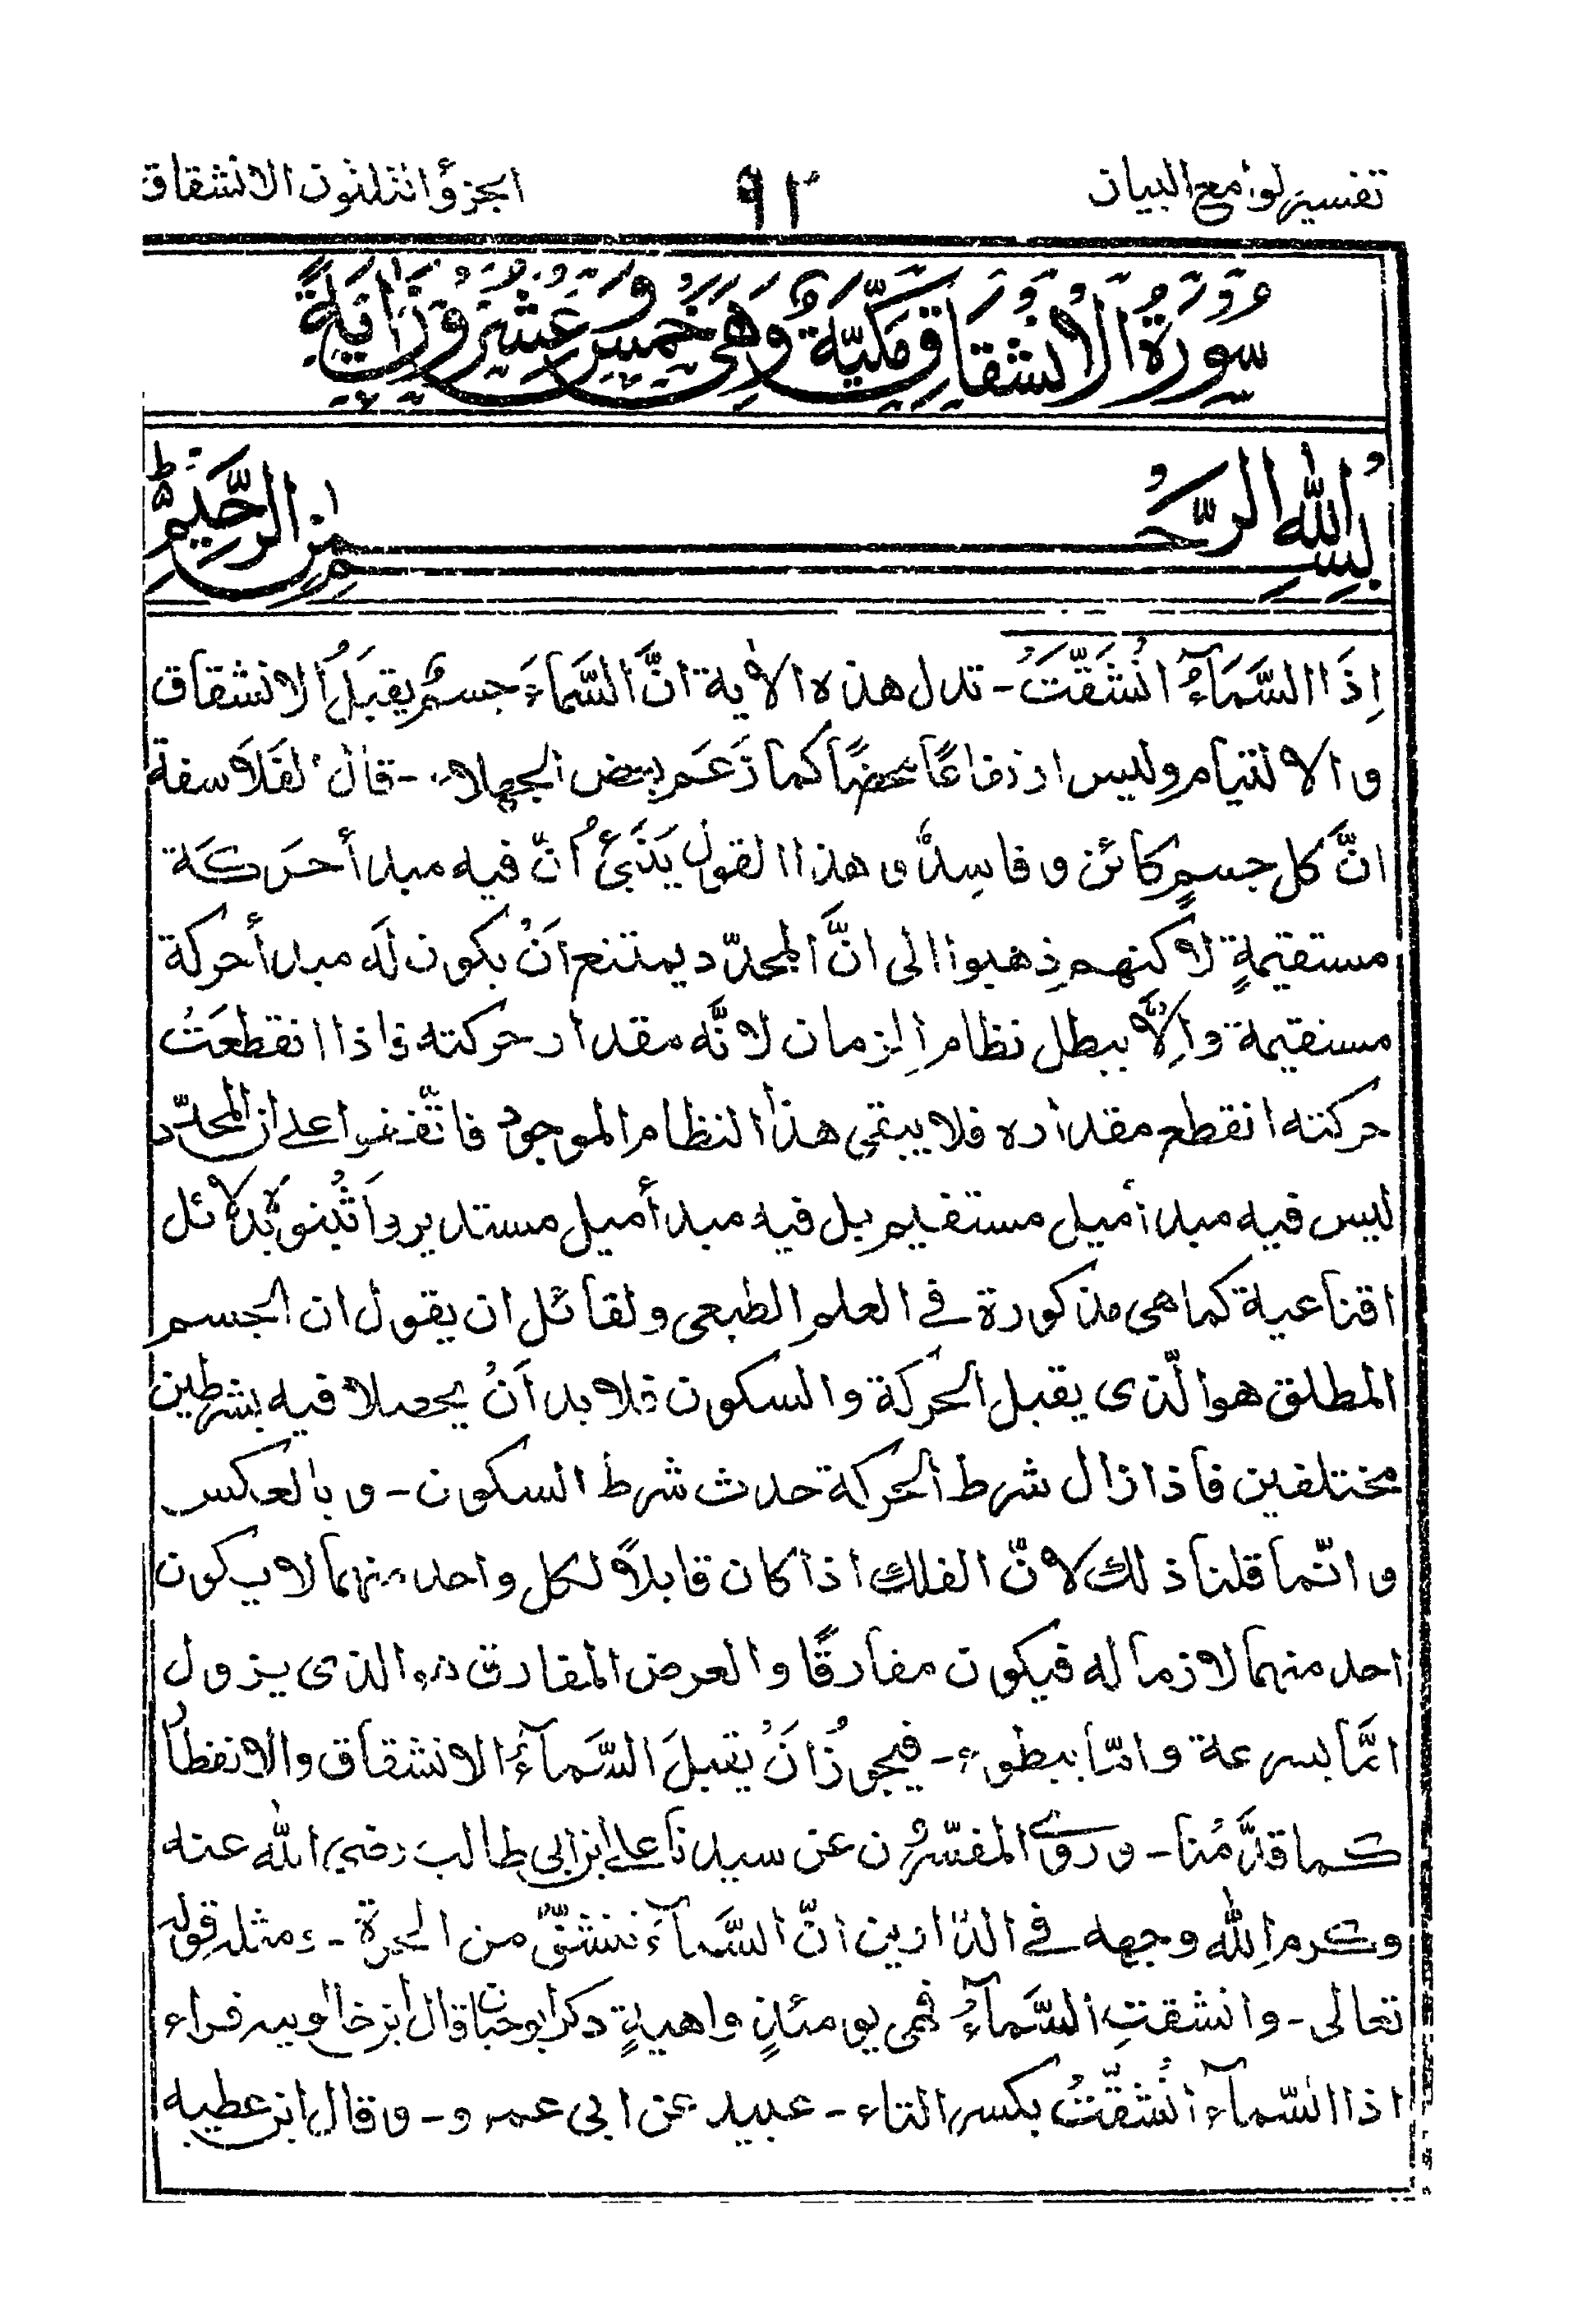 تفسير لوامع البيان ٩٢ الجزؤ الثلثون الانشقاق
سُورَةُ الْاِنْشِقَاقِ مَكِّيَّةٌ وَهِيَ خَمْسٌ وَعِشْرُوْنَ اٰيَةً
بِسْمِ اللهِ الرَّحْمٰنِ الرَّحِيْمِ
اِذَا السَّمَآءُ انْشَقَّتْ - تدل هذه الاٰية انَّ السَّمَاءَ جسمٌ يقبَلُ الانشقاق
و الالتيام وليس ارتفاعًا محضًا كما زَعَم بعض الجهلاء - قال الفَلَاسفة
انَّ كل جسمٍ كائن و فاسِدٌ و هذا القول يَنْبَئُ اَنّ فيه مبدأ حرَكَة
مستقيمةٍ لاكنهم ذهبوا الى انَّ المحدّد يمتنع اَنْ يكون لَه مبدأ حركة
مستقيمة وَاِلَّا يبطل نظام الزمان لانَّه مقدار حركته فاذا انقطعَتْ
حركته انقطع مقداره فلا يبقى هذا النظام الموجود فاتّفقوا على ان المحدّد
ليس فيه مبدأ ميل مستقيم بل فيه مبدأ ميل مستدير واَثْبتوه بدلائل
اقناعية كما هى مذكورة فى العلم الطبعى ولقائل ان يقول ان الجسم
المطلق هو الّذى يقبل الحركة والسكون فلا بد اَنْ يحصلا فيه بشرطين
مختلفين فاذا زال شرط الحركة حدث شرط السكون - و بالعكس
و انّما قلنا ذلك لانّ الفلك اذا كان قابلاً لكل واحد منهما لا يكون
احد منهما لازما له فيكون مفارقًا والعرض المفارق هو الذى يزول
امَّا بسرعة وامّا ببطوء - فيجوزُ اَنْ يقبلَ السَّمآءُ الانشقاق والانفطار
كما قدَّمْنا - و روى المفسّرون عن سيدنا على ابن ابى طالب رضى الله عنه
وكرم الله وجهه فى الدّارين انّ السَّمآءَ تنشقُّ من المجرّة - ومثله قوله
تعالى - وانشقتِ السَّمآءُ فهى يومئذٍ واهيةٍ ذكر ابو حبان قال ابن خالويه قراء
اذا السّمآء انْشقّتْ بكسر التاء - عبيد عن ابى عمرو - و قال ابن عطيه